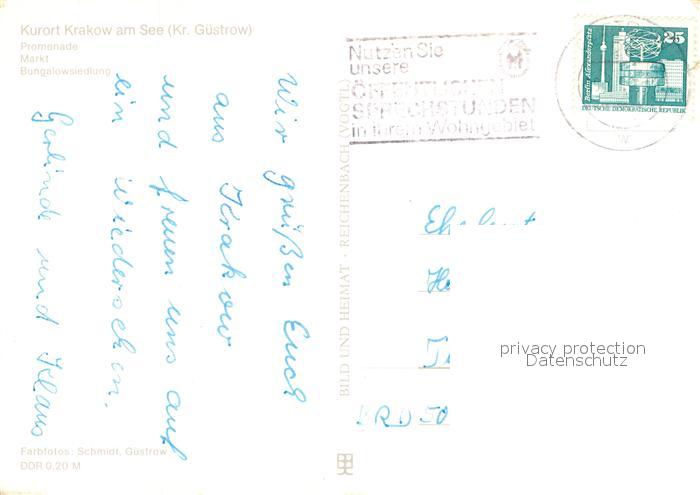 Kurort Krakow am See (Kr. Güstrow)
Promenade
Markt
Bungalowsiedlung
Wir grüßen Euch
aus Krakow
und freuen uns auf
ein Wiedersehen.
Gerlinde und Klaus
Farbfotos: Schmidt, Güstrow
DDR 0,20 M
BILD UND HEIMAT · REICHENBACH (VOGTL)
Nutzen Sie
unsere
ÖFFENTLICHEN
SPRECHSTUNDEN
in Ihrem Wohngebiet
25
Berlin, Alexanderplatz
DEUTSCHE DEMOKRATISCHE REPUBLIK
BRD 50
privacy protection
Datenschutz